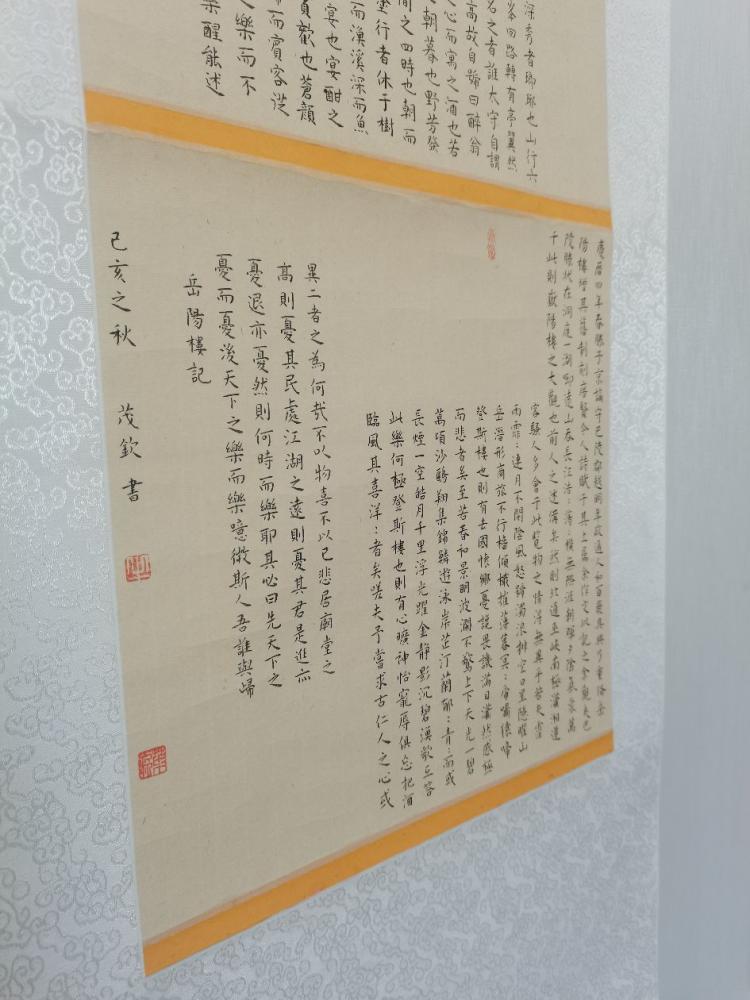 深秀者瑯琊也山行六
峯回路轉有亭翼然
名之者誰太守自謂
高故自號曰醉翁
之心而寓之酒也若
朝暮也野芳發
間之四時也朝而
塗行者休于樹
而漁溪深而魚
宴也宴酣之
歡也蒼顏
而賓客從
之樂而不
樂醒能述
慶曆四年春滕子京謫守巴陵郡越明年政通人和百廢具興乃重脩岳
陽樓增其舊制刻唐賢今人詩賦于其上屬余作文以記之余觀夫巴
陵勝狀在洞庭一湖銜遠山吞長江浩:蕩:橫無際涯朝暉夕陰氣象萬
千此則嶽陽樓之大觀也前人之述備矣然則北通巫峽南極瀟湘遷
客騷人多會于此覽物之情得無異乎若夫霪
雨霏:連月不開陰風怒號濁浪排空日星隱曜山
岳潛形商旅不行檣傾檝摧薄暮冥:虎嘯猿啼
登斯樓也則有去國懷鄉憂讒畏譏滿目蕭然感極
而悲者矣至若春和景明波瀾不驚上下天光一碧
萬頃沙鷗翔集錦鱗遊泳岸芷汀蘭郁:青:而或
長煙一空皓月千里浮光躍金靜影沉碧漁歌互答
此樂何極登斯樓也則有心曠神怡寵辱俱忘把酒
臨風其喜洋:者矣嗟夫予嘗求古仁人之心或
異二者之為何哉不以物喜不以己悲居廟堂之
高則憂其民處江湖之遠則憂其君是進亦
憂退亦憂然則何時而樂耶其必曰先天下之
憂而憂後天下之樂而樂噫微斯人吾誰與歸
岳陽樓記
己亥之秋 茂欽書